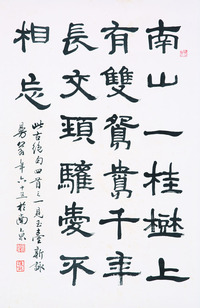 南山一桂樹上
有雙鴛鴦千年
長交頸驩愛不
相忘
此古絕句四首之一見玉臺新詠
年六十五於南京